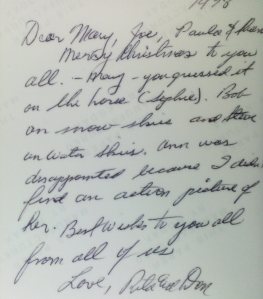 Dear Mary, Joe, Paula &
Merry Christmas to you
all. – Mary – you guessed it
on the horse (Sophie). Bob
on snow skiis and Steve
on water skiis. Ann was
disappointed because I didn't
find an action picture of
her. Best Wishes to you all
from all of us
Love, Don